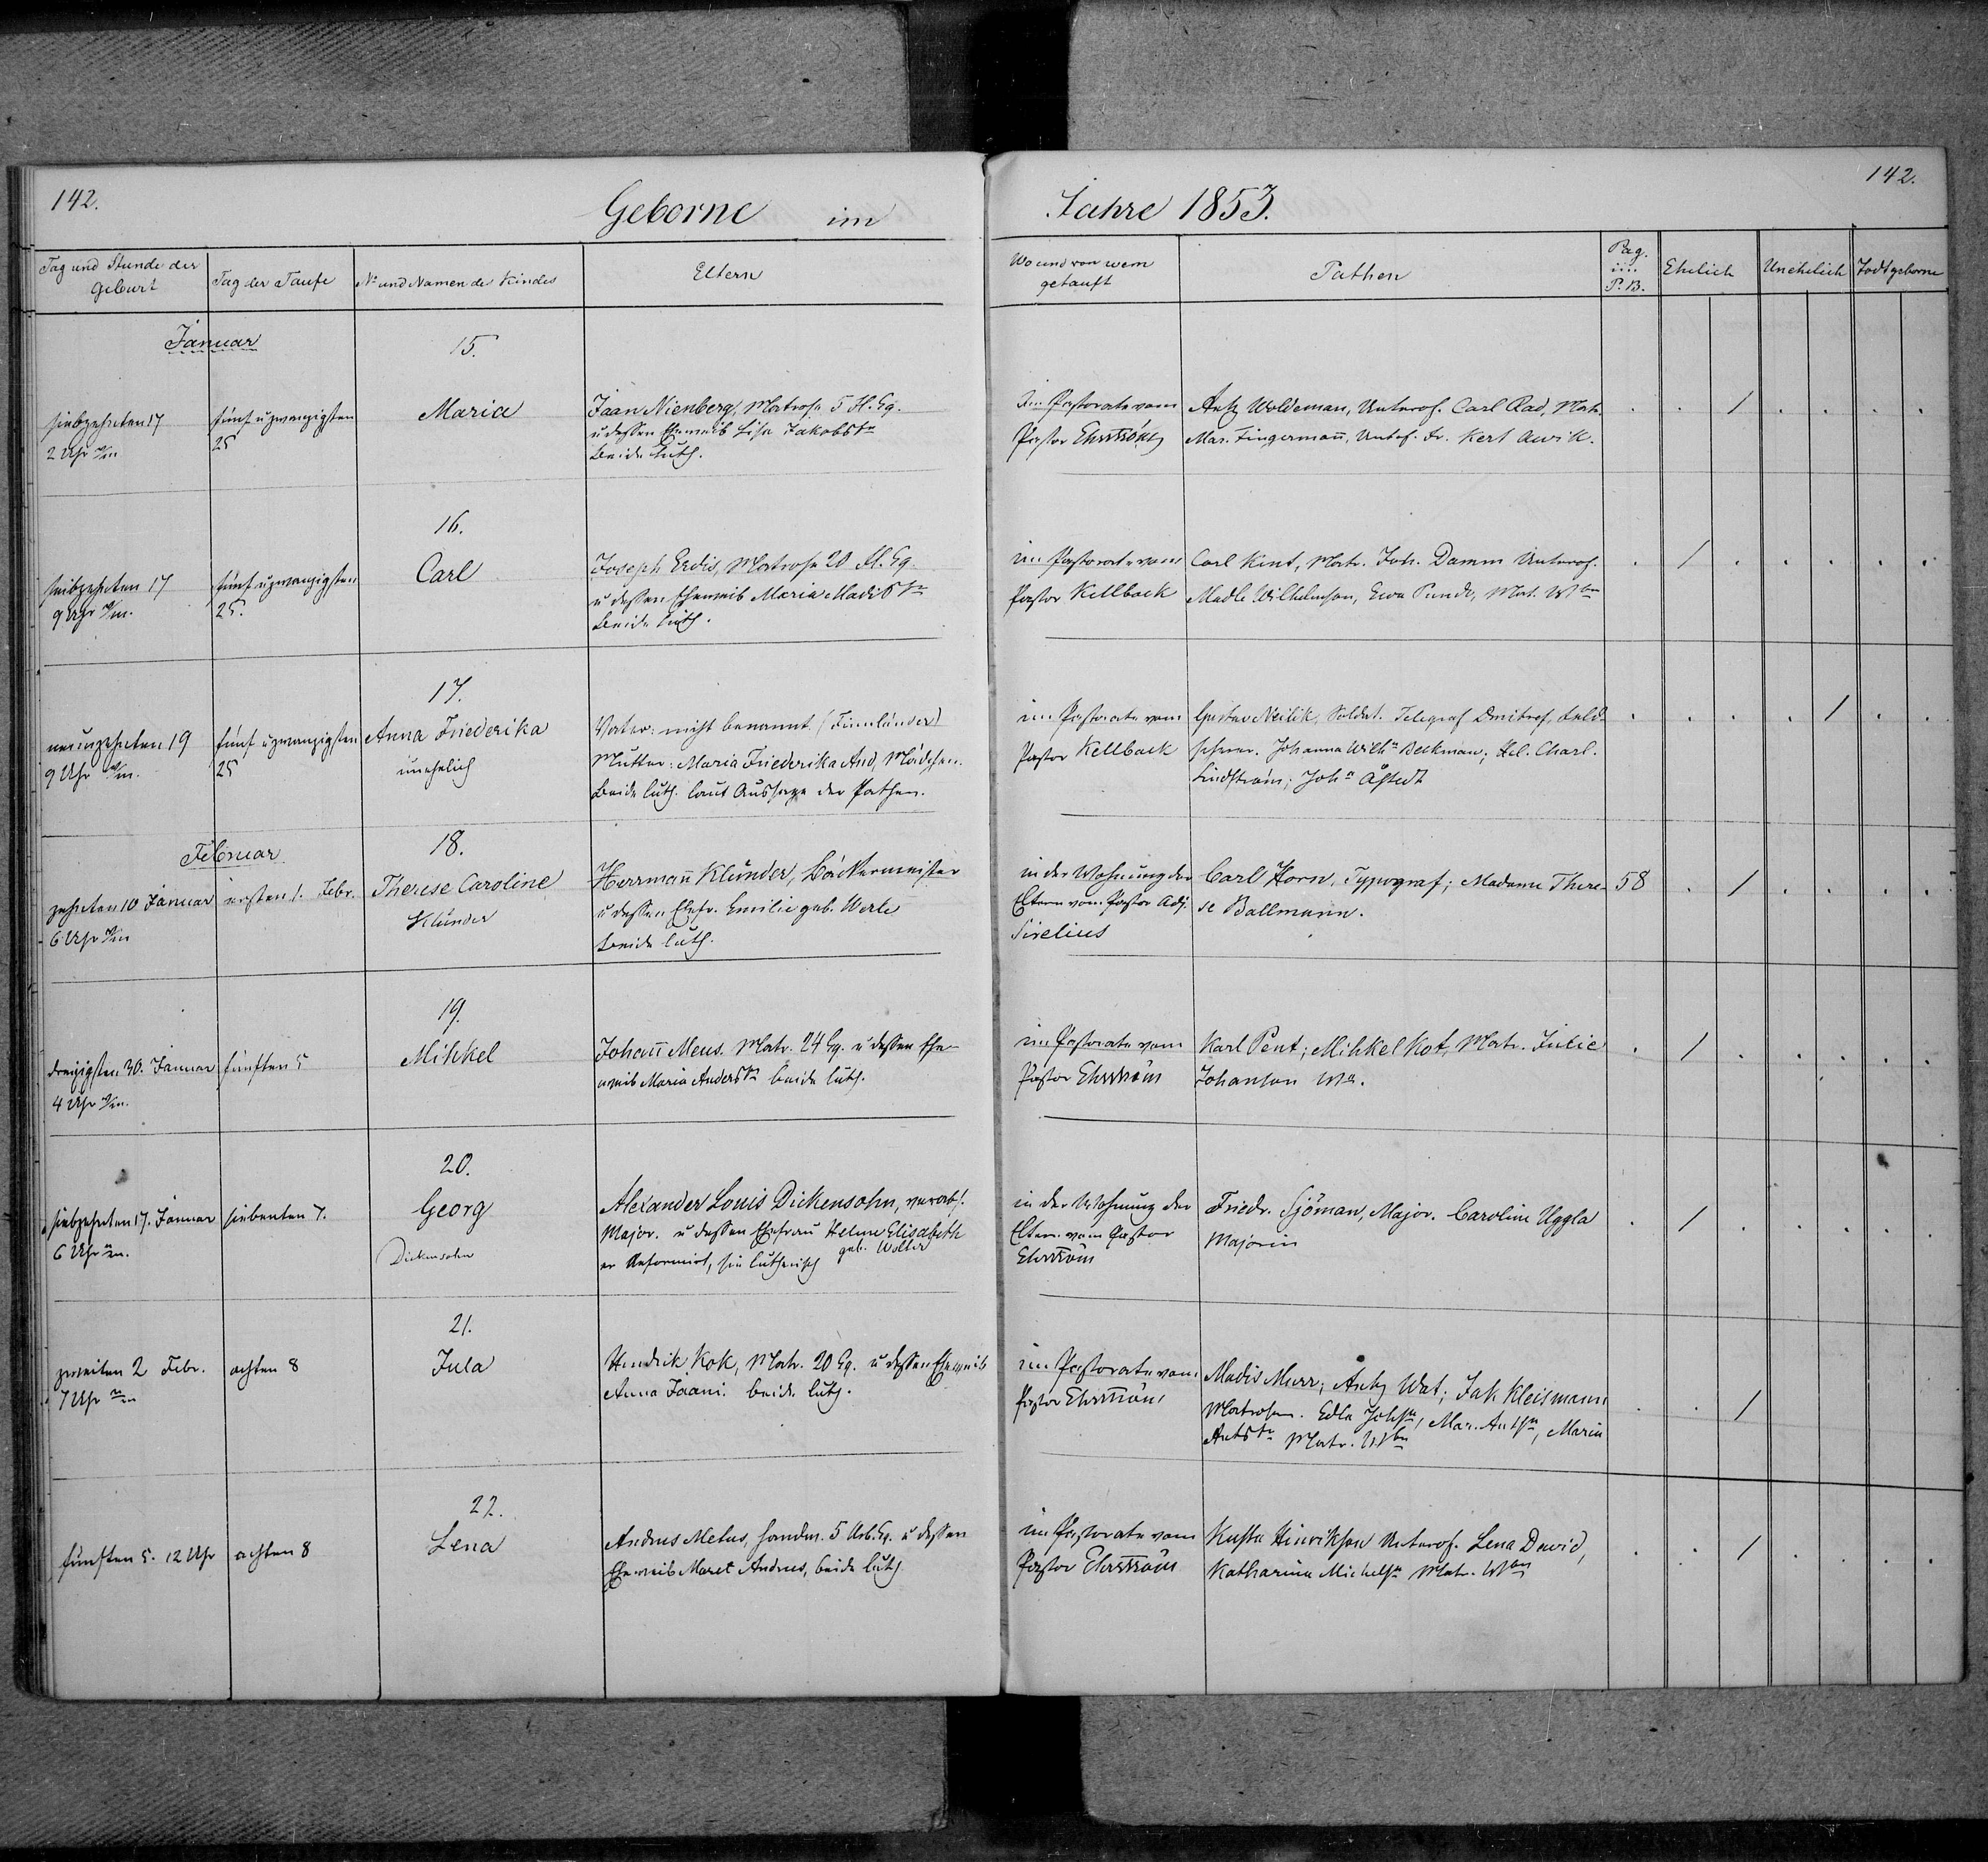 142.
Geborne im
Jahre 1853.
142.
Tag und Stunde der Geburt
Tag der Taufe
No und Namen des Kindes
Eltern
Wo und von wem getauft
Pathen
Pag. im P. B.
Ehelich
Unehelich
Todtgeborne
Januar
15.
siebzehnten 17
2 Uhr
fünf u zwanzigsten
25
Maria
Jaan Nienberg, Matrose 5 Fl. Eq.
u dessen Eheweib Lisa Jakobstr
beide luth.
im Pastorate vom
Pastor Ehrström
Antz Woldeman, Unterof. Carl Rad, Matr.
Mar. Fingermañ, Untof. Fr. Kert Awik.
16.
siebzehnten 17
9 Uhr
fünf u zwanzigsten
25.
Carl
Joseph Erdis, Matrose 20 Fl. Eq.
u dessen Eheweib Maria Madistr
beide luth.
im Pastorate vom
Pastor Kellback
Carl Kent, Matr. Joh. Damm Unterof.
Madle Wilhelmson, Ewa Punde, Mat. Wbr
17.
neunzehnten 19
9 Uhr
fünf u zwanzigsten
25
Anna Friederika
unehelich
Vater: nicht benannt (Finnländer)
Mutter: Maria Friederika And, Mädchen.
beide luth. laut Aussage der Pathen.
im Pastorate vom
Pastor Kellback
Gustav Neilik, Soldat. Telegraf Dmitref, Feld-
scherer. Johanna Wilh. Beckman; Hel. Charl.
Lindström; Joh. Åstedt
Februar
18.
zehnten 10 Januar
6 Uhr
ersten 1. Febr.
Therese Caroline
Klünder
Herrmañ Klünder, Bäckermeister
u dessen Ehefr. Emilie geb. Werle
beide luth.
in der Wohnung der
Eltern vom Pastor Adj.
Sirelius
Carl Horn, Typograf; Madame There-
se Ballmann.
58
19.
dreizigsten 30. Januar
4 Uhr
fünften 5
Mihkel
Johañ Meus. Matr. 24 Eq. u dessen Ehe-
weib Maria Anderstr beide luth.
im Pastorate vom
Pastor Ehrström
Karl Pent; Mihkel Kot, Matr. Julie
Johanson
20.
siebzehnten 17. Januar
6 Uhr
siebenten 7.
Georg
Dickensohn
Alexander Louis Dickensohn, verabs.
Major. u dessen Ehefrau Helene Elisabeth
geb. Wolter
er Reformirt, sie lutherisch
in der Wohnung der
Eltern vom Pastor
Ehrström
Friedr. Sjöman, Major. Caroline Uggla
Majorin
21.
zweiten 2 Febr.
7 Uhr
achten 8
Jula
Hendrik Kok, Matr. 20 Eq. u dessen Eheweib
Anna Jaani. beide luth.
im Pastorate vom
Pastor Ehrström
Madis Murr; Antz Wat; Jak Kleismann
Matrosen. Edla Johs, Mar. Ants, Maria
Antstr Matr. Wbr
22.
fünften 5. 12 Uhr
achten 8
Lena
Andrus Metus, Handw. 5 Arb. Eq. u dessen
Eheweib Maret Andrus, beide luth.
im Pastorate vom
Pastor Ehrström
Kusta Hinrikson Unterof. Lena David,
Katharina Michels Matr. Wbr